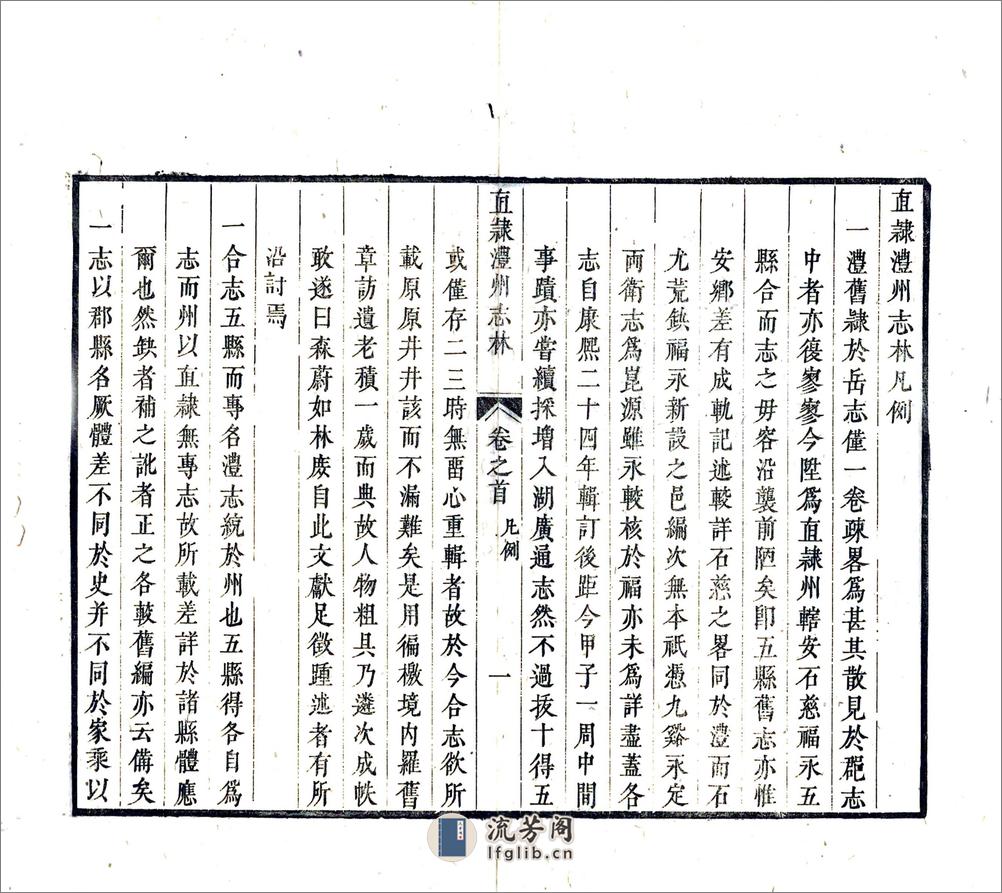 直隸澧州志林凡例
一澧舊隸於岳志僅一卷疎畧爲甚其散見於郡志
中者亦復寥寥今陞爲直隸州轄安石慈福永五
縣合而志之毋容沿襲前陋矣卽五縣舊志亦惟
安鄉差有成軌記述較詳石慈之畧同於澧而石
尤荒鈌福永新設之邑編次無本祇憑九谿永定
兩衛志爲崑源雖永較核於福亦未爲詳盡蓋各
志自康熙二十四年輯訂後距今甲子一周中間
事蹟亦嘗續採增入湖廣通志然不過拔十得五
直隸澧州志林
卷之首
凡例
一
或僅存二三時無畱心重輯者故於今合志欲所
載原原井井該而不漏難矣是用徧檄境内羅舊
章訪遺老積一歲而典故人物粗具乃遴次成帙
敢遂曰森蔚如林庻自此文獻足徵踵述者有所
沿討焉
一合志五縣而專名澧志統於州也五縣得各自爲
志而州以直隸無專志故所載差詳於諸縣體應
爾也然鈌者補之訛者正之各較舊編亦云備矣
一志以郡縣名厥體差不同於史并不同於家乘以
流芳阁
lfglib.cn